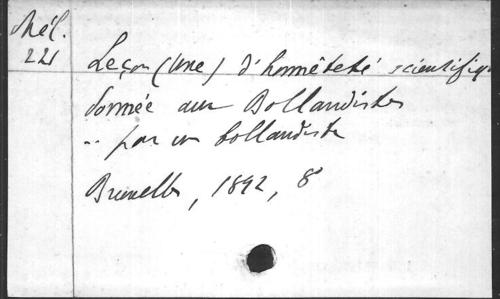 Mél.
221
Leçon (Une) d'honnêteté scientifiq
donnée aux Bollandistes
.. par un bollandiste
Bruxelles, 1892, 8°